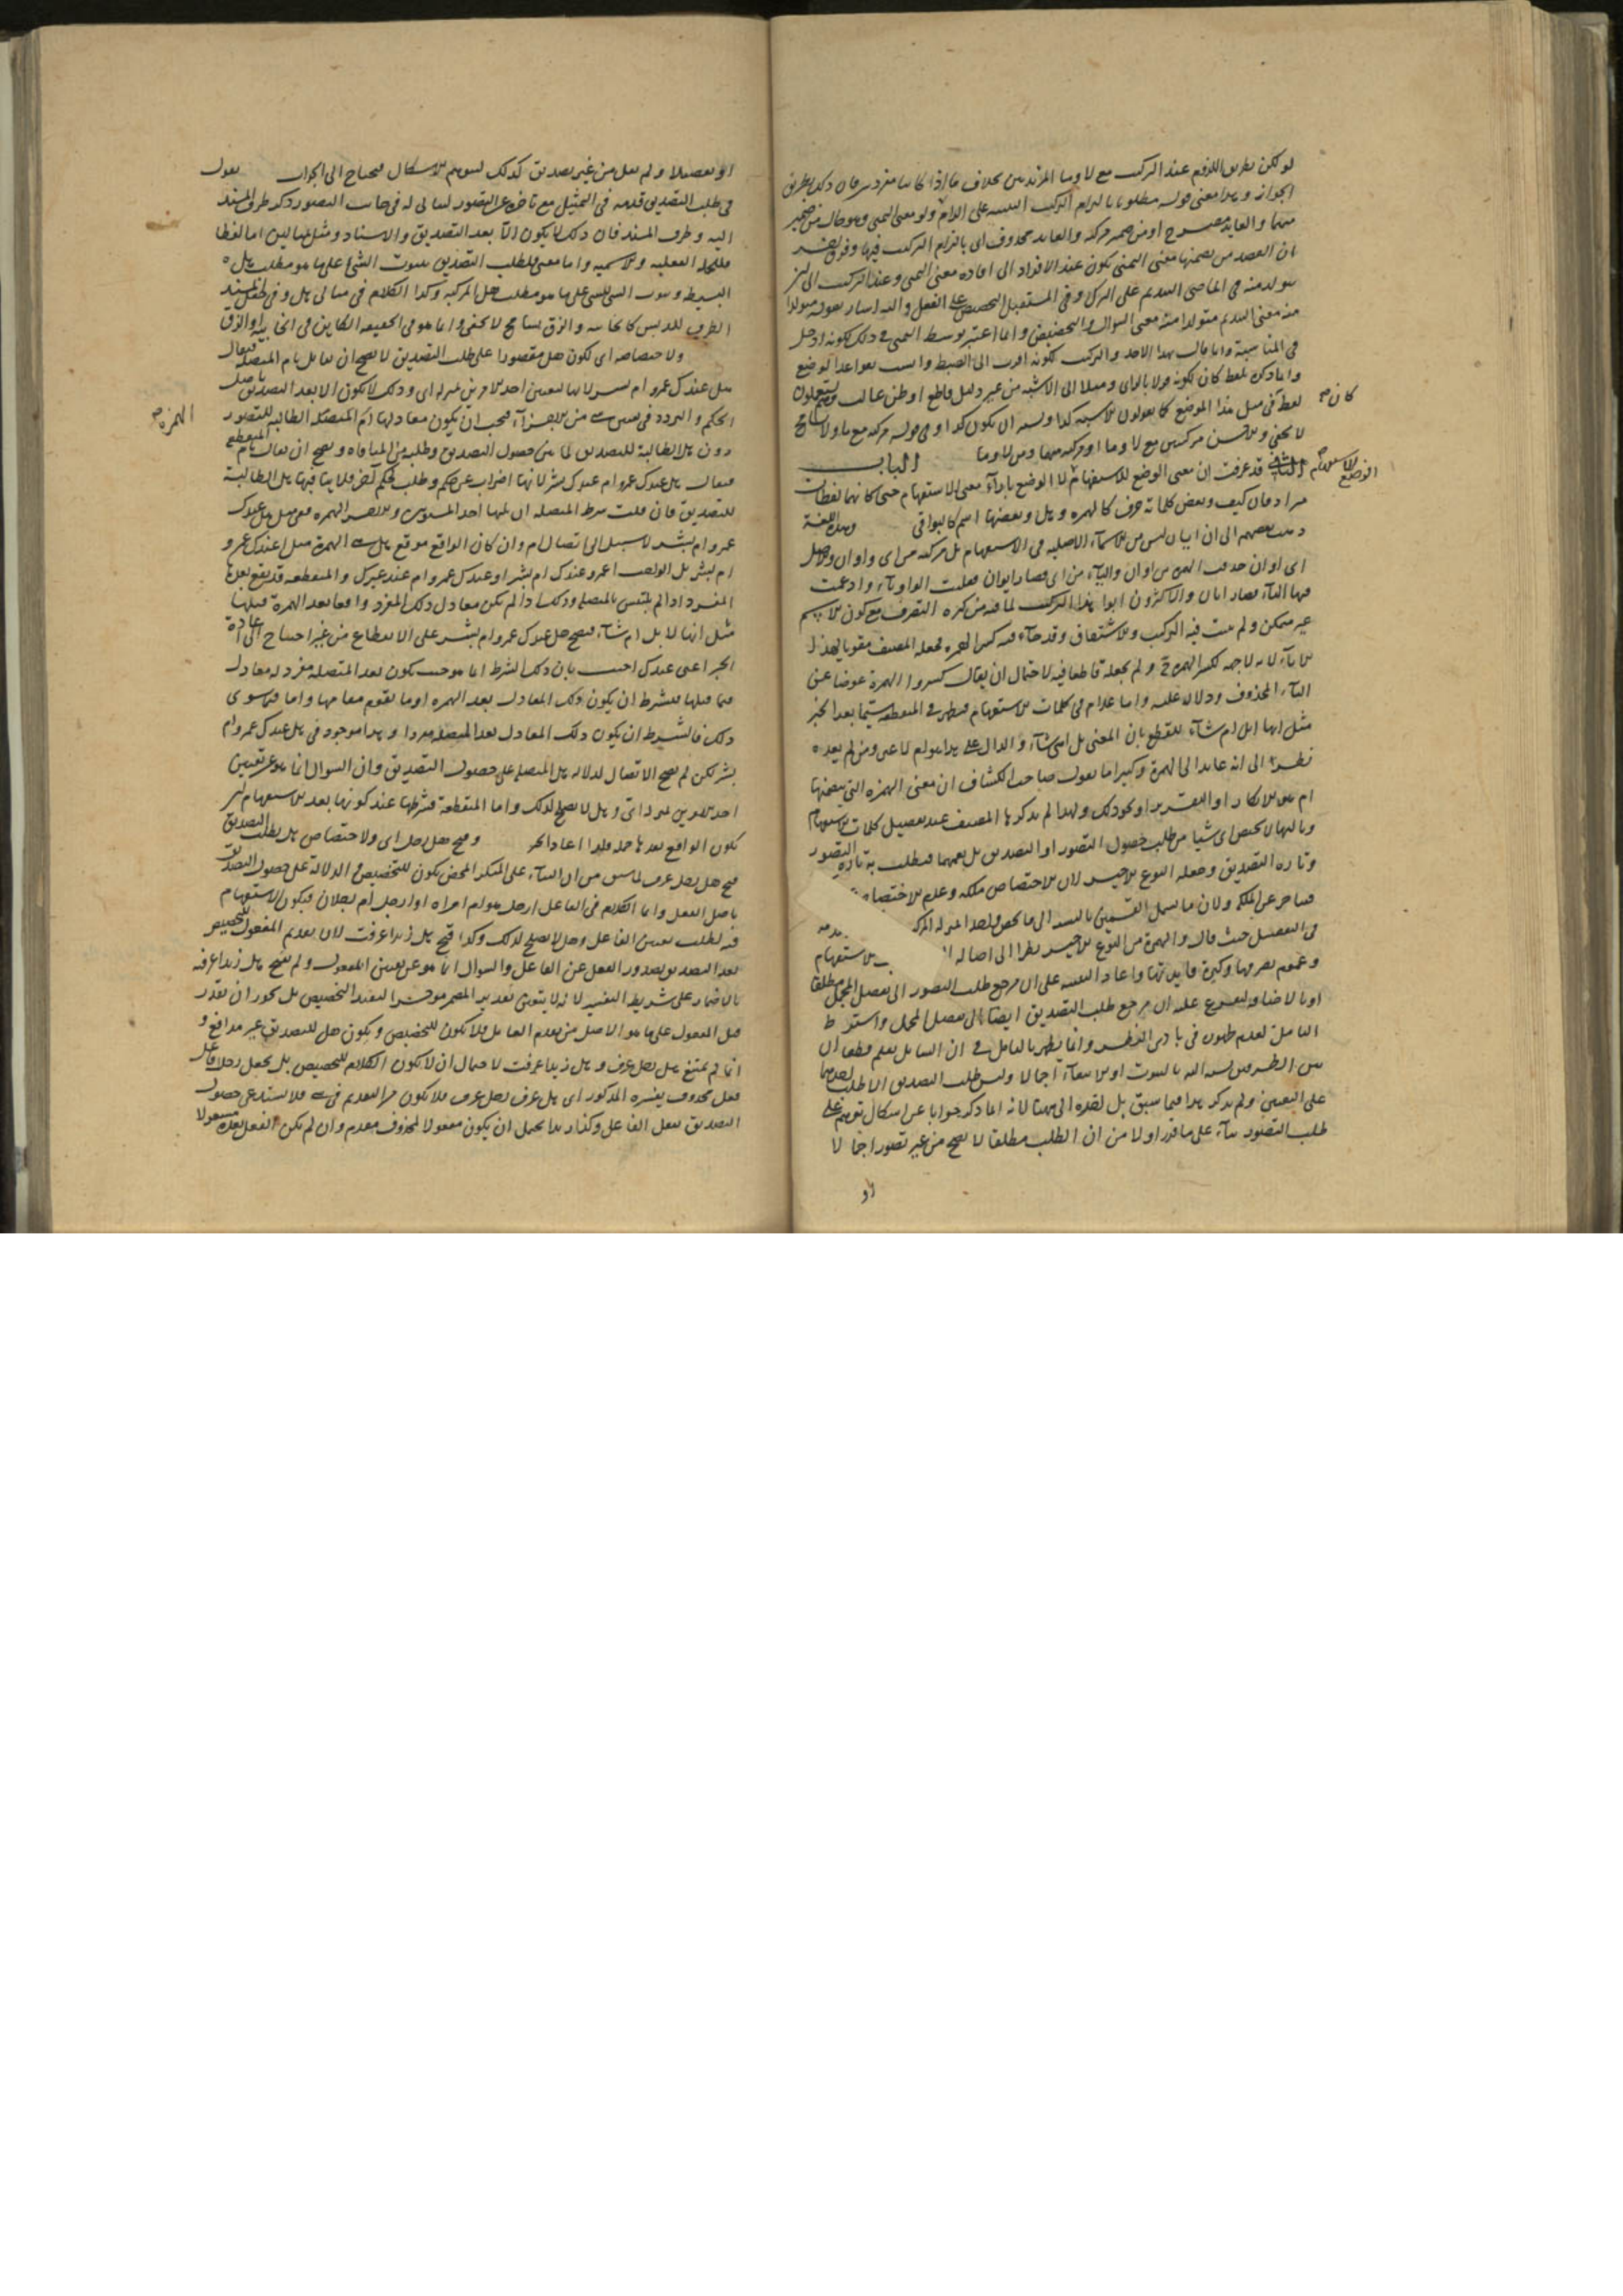 لو لكن بطريق اللزوم عند التركيب مع لا وما المزيدتين بخلاف ما اذا كانتا مفردتين فان ذلك بطريق
الجواز وهذا معنى قوله مطلوبا بالزام التركيب التنبيه على الزام هل ولو معنى التمني وهو حال من ضمير
منهما والعائد مصرح او من ضمير مركبة والعائد محذوف اي بالزام التركيب فيها
ان القصد من تضمنها معنى التمني يكون عند الافراد الى افادة معنى التمني وعند التركيب الى ان
يتولد منه في الماضي التنديم على الترك وفي المستقبل التحضيض على الفعل واليه اشار بقوله متولدا
منه معنى التنديم متولدا منه معنى السؤال والتحضيض وانما اعتبر توسط التمني في ذلك لكونه ادخل
في المناسبة وانما قال بهذا الاخذ والتركيب لكونه اقرب الى الضبط
وانما ذكره بلفظ كان لكونه قولا بالراي وميلا الى الاشبه من غير دليل قاطع او ظن غالب وهم يستعملون
لفظ كان في مثل هذا الموضع كما يقولون الاشبه كذا ويشبه ان يكون كذا وفي قوله مركبة مع ما ولا تسامح
لا يخفى والاحسن مركبتين مع لا وما او مركبة منهما ومن لا وما الباب
الثاني قد عرفت ان معنى الوضع للاستفهام لا الوضع بازاء معنى الاستفهام حتى كانها لفظات
مرادفان كيف وبعض كلماته حرف كالهمزة وهل وبعضها اسم كالبواقي وبهذه اللغة
ذهب بعضهم الى ان ايان ليس من الاسماء الاصلية في الاستفهام بل مركبة من اي واوان والاصل
اي اوان حذفت الهمزة من اوان والياء من اي فصار ايوان فقلبت الواو ياء وادغمت
فيها الياء فصار ايان والاكثرون ابوا هذا التركيب لما فيه من كثرة التصرف مع كون الاسم
غير متمكن ولم يثبت فيه التركيب والاشتقاق وقد جاء فيه كسر الهمزة فجعله المصنف مقويا لهذا
الاباء لانه لا جهة لكسر الهمزة ح ولم يجعله قاطعا فيه لاحتمال ان يقال كسروا الهمزة عوضا عن
الياء المحذوف ودلالة عليه واما عد ام في كلمات الاستفهام فبظهر في المنقطعة سيما بعد الخبر
مثل انها ابل ام شاء للقطع بان المعنى بل اهي شاء والدال على هذا هو ام لا غير ومن لم يعده
نظر الى انه عائد الى الهمزة وكثيرا ما يقول صاحب الكشاف ان معنى الهمزة التي يتضمنها
ام هو الانكار او التقرير او نحو ذلك ولهذا لم يذكرها المصنف عند تفصيل كلمات الاستفهام
وثالثها لا يختص اي شيئا من طلب حصول التصور او التصديق بل يعمهما فيطلب به تارة التصور
وتارة التصديق وجعله النوع الاخير لان الاختصاص ملكة وعدم الاختصاص
فيتاخر عن الملكة ولان ما يشمل القسمين بالنسبة الى ما يختص باحدهما بمنزلة المركب
في التفصيل حيث قال والهمزة من النوع الاخير نظرا الى اصالة الاستفهام
وعموم تصرفها وكثرة فايدتها واعاد التنبيه على ان مرجع طلب التصور الى تفصيل المجمل مطلقا
او بالاضافة ليتفرع عليه ان مرجع طلب التصديق ايضا الى تفصيل المجمل واشترط
التامل لعدم ظهوره في بادي النظر وانما يظهر بالتامل في ان السائل يعلم قطعا ان
بين الطرفين نسبة اما بالثبوت او الانتفاء اجمالا وليس طلب التصديق الا طلب احدهما
على التعيين ولم يذكر هذا فيما سبق بل اخره الى ههنا لانه انما ذكر جوابا عن اشكال توهم على
طلب التصور بناء على ما قرر اولا من ان الطلب مطلقا لا يصح من غير تصور اجمالا
او
كان صح
الوضع للاستفهام
او تفصيلا ولم يقل من غير تصديق كذلك ليتوهم الاشكال فيحتاج الى الجواب يقول
في طلب التصديق قدمه في التمثيل مع تاخره عن التصور لما ان له في جانب التصور ذكر طرف المسند
اليه وطرف المسند فان ذلك لا يكون الا بعد التصديق والاسناد ومثل بمثالين اما لفظا
فللجملة الفعلية والاسمية واما معنى فلطلب التصديق بثبوت الشيء على ما هو مطلب هل
البسيطة وثبوت الشيء للشيء على ما هو مطلب هل المركبة وكذا الكلام في مثالي هل وفي لفظ المسند
الظرف للدبس كالخابية والزق تسامح لا يخفى وانما هو في الحقيقة الكاين في الخابية او الزق
ولاختصاصه اي لكون هل مقصورا على طلب التصديق لا يصح ان يقابل بام المتصلة فيقال
هل عندك عمرو ام بشر لانها لتعيين احد الامرين وذلك لا يكون الا بعد التصديق باصل
الحكم والتردد في تعيين شيء من الاجزاء فيجب ان يكون معادلها ام المتصلة الطالبة للتصور
دون هل الطالبة للتصديق لما بين حصول التصديق وطلبه من المنافاة ويصح ان يقال بام المنقطعة
فيقال هل عندك عمرو ام عندك بشر لانها اضراب عن حكم وطلب لحكم آخر فلا ينافيها هل الطالبة
للتصديق فان قلت شرط المتصلة ان يليها احد المستويين والاخر الهمزة ففي مثل هل عندك
عمرو ام بشر لا سبيل الى اتصال ام وان كان الواقع موقع هل هي الهمزة مثل اعندك عمرو
ام بشر بل الواجب اعمرو عندك ام بشر او عندك عمرو ام عند غيرك والمنقطعة قد يقع بعدها
المفرد اذا لم يلتبس بالمتصلة وذلك اذا لم يكن معادل ذلك المفرد واقعا بعد الهمزة قبلها
مثل انها لابل ام شاء فيصح هل عندك عمرو ام بشر على الانقطاع من غير احتياج الى اعادة
الخبر اعني عندك اجيب بان ذلك الشرط انما هو حيث يكون بعد المتصلة مفرد له معادل
فيما قبلها فيشترط ان يكون ذلك المعادل بعد الهمزة او ما يقوم مقامها واما فيما سوى
ذلك فالشرط ان يكون ذلك المعادل بعد المتصلة مفردا وهذا موجود في هل عندك عمرو ام
بشر لكن لم يصح الاتصال لدلالة ام المتصلة على حصول التصديق وان السؤال انما هو عن تعيين
احد الامرين وهل لا يصلح لذلك واما المنقطعة فشرطها عند كونها بعد الاستفهام ان
يكون الواقع بعدها جملة فلهذا اعاد الخبر وقبح هل رجل اي ولاختصاص هل بطلب التصديق
قبح هل رجل عرف لما سبق من ان البناء على المنكر المحض يكون للتخصيص والدلالة على حصول التصديق
باصل الفعل وانما الكلام في الفاعل ارجل هو ام امراة او ارجل ام رجلان فيكون الاستفهام
فيه لطلب تعيين الفاعل وهل لا يصلح لذلك وكذا قبح هل زيدا عرفت لان تقديم المفعول للتخصيص
بعد التصديق بصدور الفعل عن الفاعل والسؤال انما هو عن تعيين المفعول ولم يقبح هل زيدا عرفته
بالاضمار على شريطة التفسير لانه لا يتعين تقدير المضمر موخرا ليفيد التخصيص بل يجوز ان يقدر
قبل المفعول على ما هو الاصل من تقدم العامل فلا يكون للتخصيص ويكون هل للتصديق غير مدافع و
انما لم يمتنع هل رجل عرف وهل زيدا عرفت لاحتمال ان لا يكون الكلام للتخصيص بل يجعل رجل فاعل
فعل محذوف يفسره المذكور اي هل عرف رجل عرف فلا يكون من التقديم في شيء فلا يستدعي حصول
التصديق بفعل الفاعل وكذا زيدا يحتمل ان يكون مفعولا لمحذوف مقدم وان لم يكن الفعل بعده مشغولا
الهمزة صح